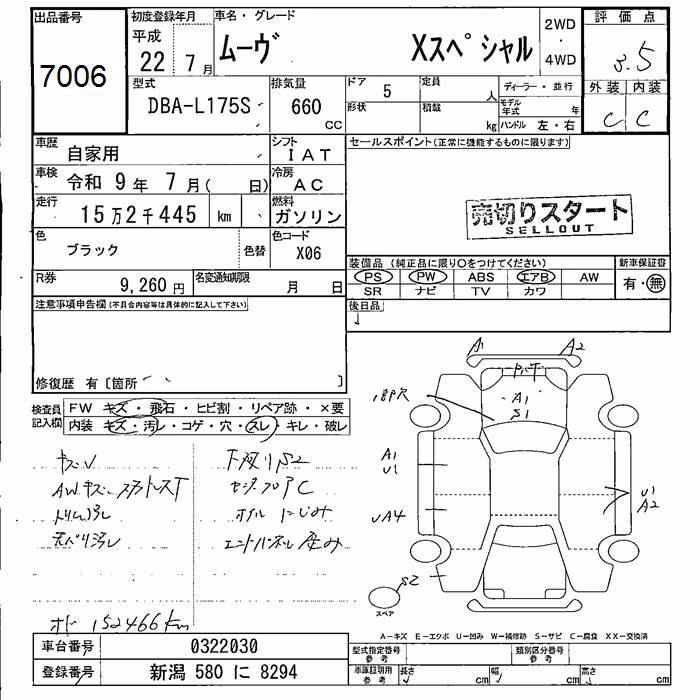 出品番号
7006
初度登録年月
平成
22 7 月
車名・グレード
ムーヴ Xスペシャル
2WD
・
4WD
評価点
3.5
外装 内装
C C
型式
DBA-L175S
排気量
660
CC
ドア 5
形状
定員 人
積載 kg
ディーラー・並行
モデル年式 年
ハンドル 左・右
車歴
自家用
シフト
IAT
車検
令和 9 年 7 月( 日)
冷房
AC
走行
15 万 2 千 445 km
燃料
ガソリン
色
ブラック
色替
色コード
X06
R券
9,260 円
名変通知期限
月 日
セールスポイント(正常に機能するものに限ります)
売切りスタート
SELLOUT
装備品 (純正品に限り○をつけてください)
PS PW ABS エアB AW
SR ナビ TV カワ
新車保証書
有・無
後日品
注意事項申告欄(不具合内容等は具体的に記入して下さい)
修復歴 有〔箇所 〕
検査員
記入欄
FW キズ・飛石・ヒビ割・リペア跡・×要
内装 キズ・汚レ・コゲ・穴・スレ・キレ・破レ
キズU
下廻りS2
ホイル にじみ
エンドパネル 歪み
152466km
A1
A2
P.T
A1
S1
A1
U1
UA4
U1
A2
S2
スペア
A-キズ E-エクボ U-凹み W-補修跡 S-サビ C-腐食 XX-交換済
車台番号 0322030
登録番号 新潟 580 に 8294
型式指定番号
参考
類別区分番号
参考
車庫証明用
参考
長さ cm
幅 cm
高さ cm